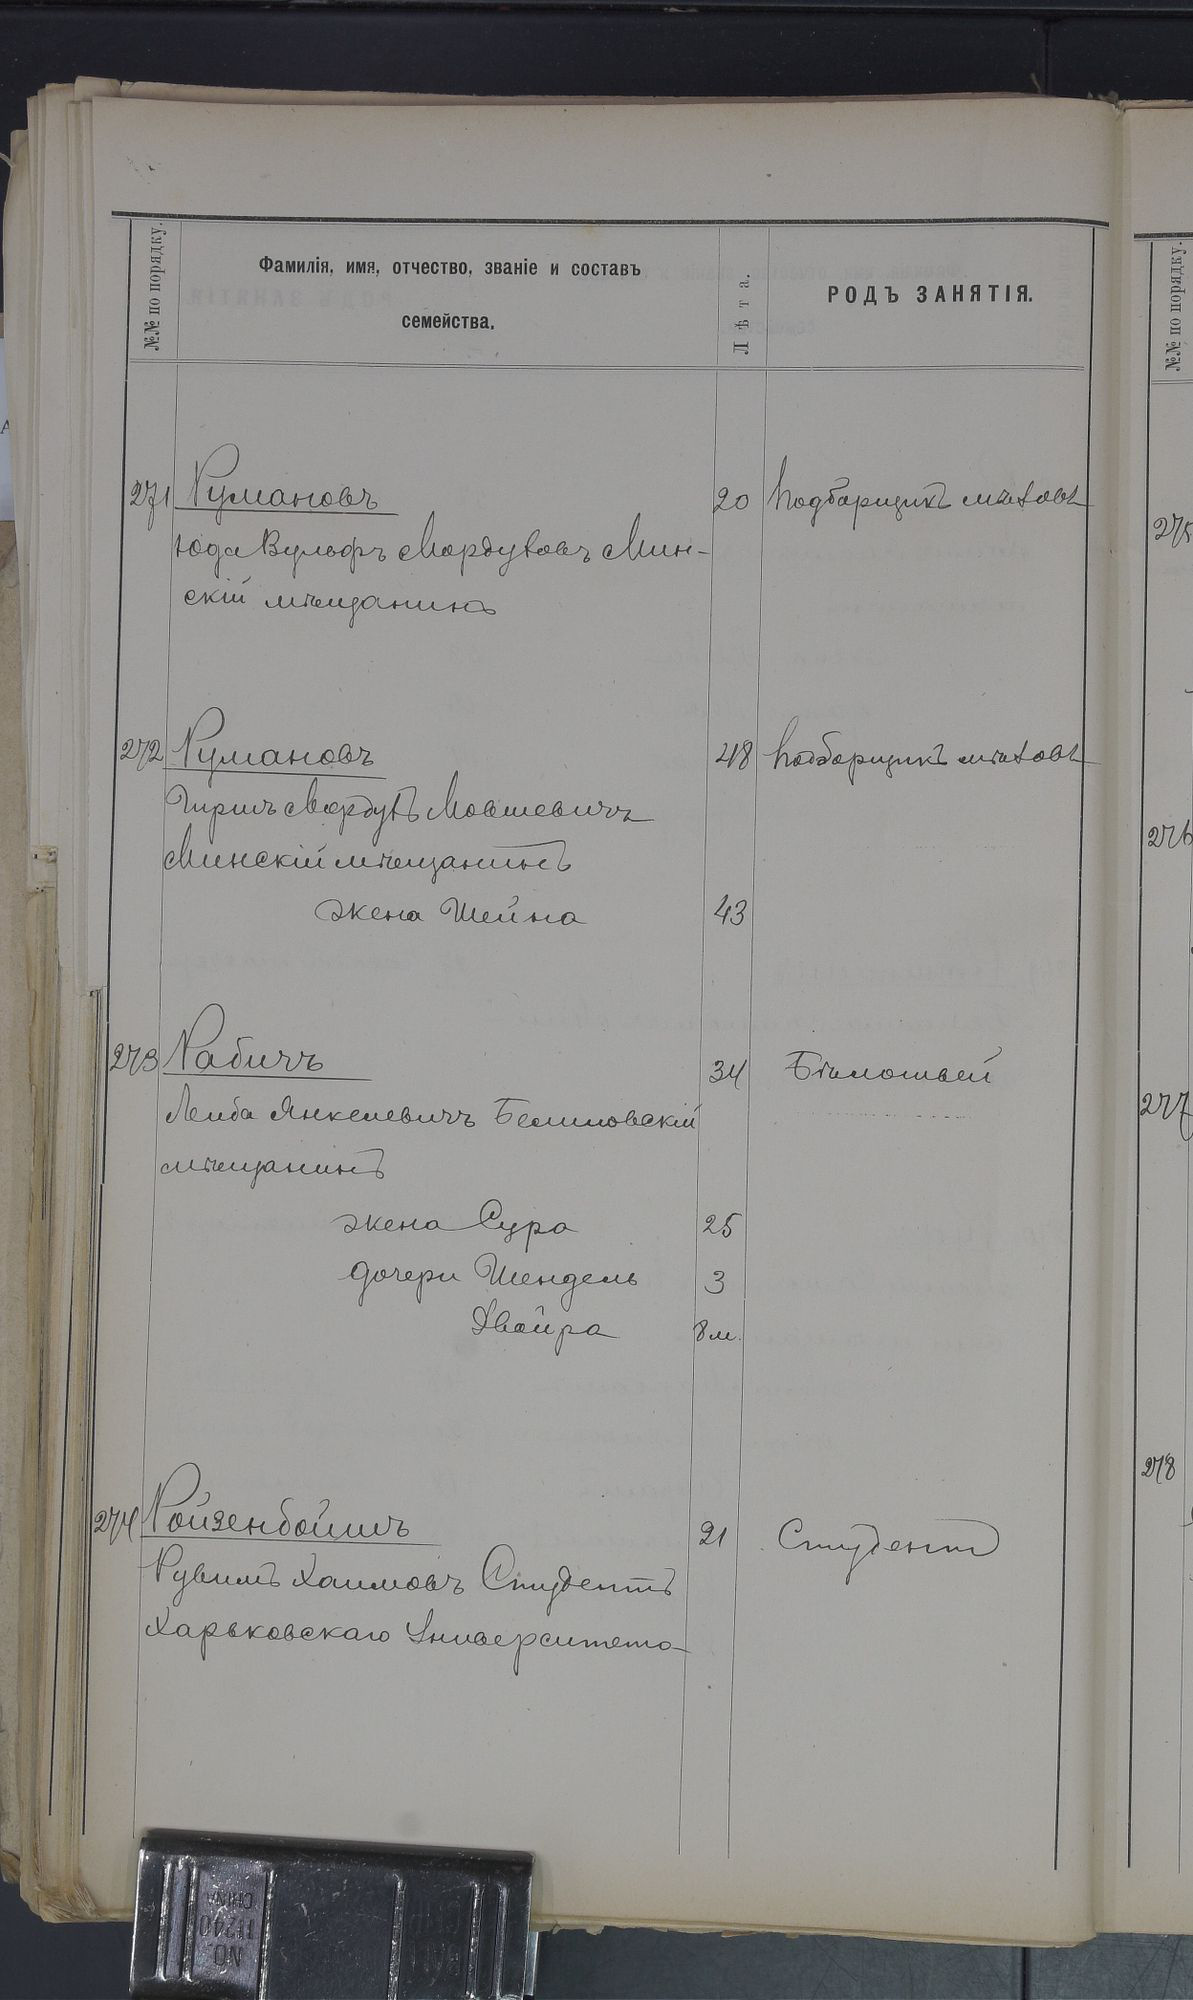 №№ по порядку.
Фамилія, имя, отчество, званіе и составъ
семейства.
Лѣта.
РОДЪ ЗАНЯТІЯ.
№№ по порядку.
271 Румановъ 20 Подборщикъ мѣховъ
Юда Вульфъ Мордуховъ Мин-
скій мѣщанинъ
272 Румановъ 48 Подборщикъ мѣховъ
Гиршъ Мордухъ Мовшевичъ
Минскій мѣщанинъ
жена Шейна 43
273 Рабичъ 34 Бѣлошвей
Лейба Янкелевичъ
мѣщанинъ
жена Сура 25
дочери Шендель 3
Двойра 8 м.
274 Ройзенбоймъ 21 Студентъ
Рувимъ Хаимовъ Студентъ
Харьковскаго Университета
275
276
277
278
NO.
11240
CHINA